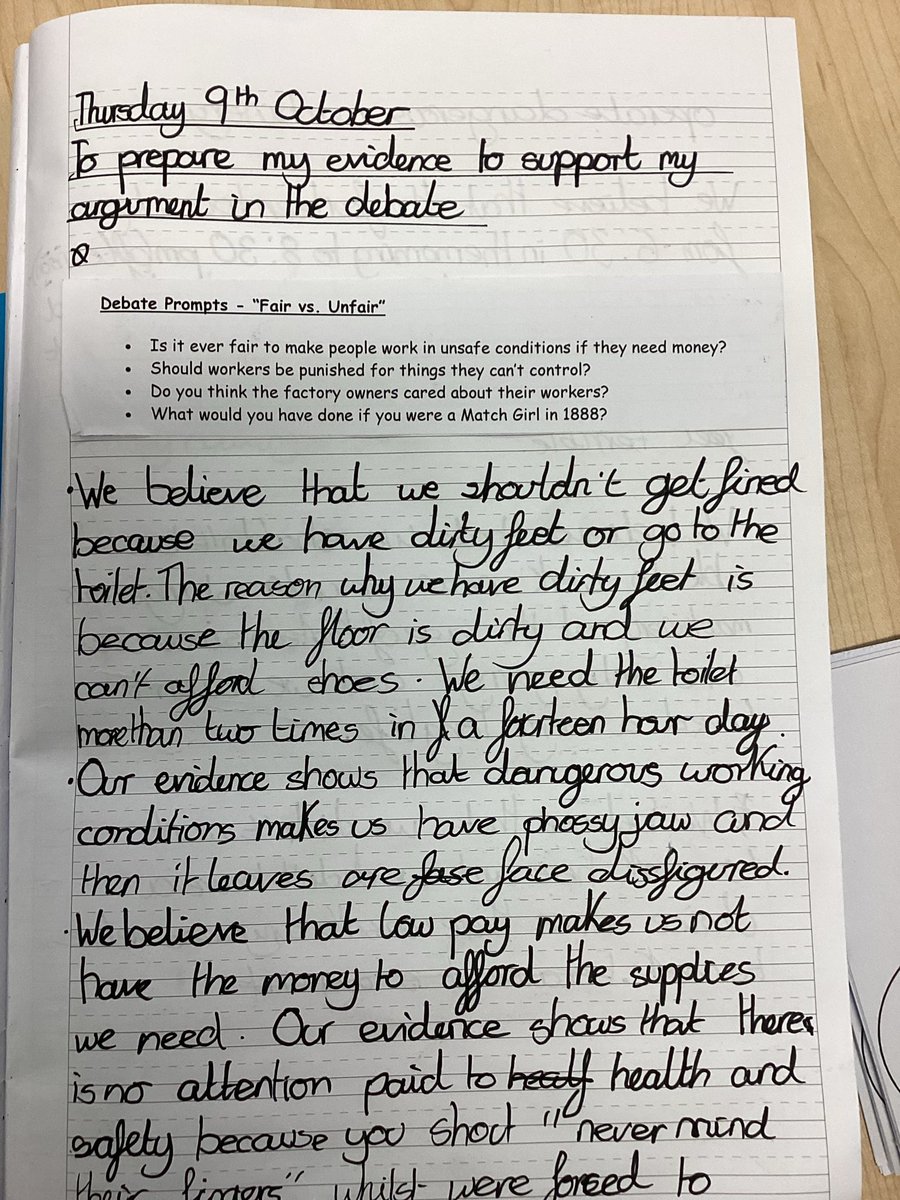 Thursday 9th October
To prepare my evidence to support my
argument in the debate
Debate Prompts - "Fair vs. Unfair"
• Is it ever fair to make people work in unsafe conditions if they need money?
• Should workers be punished for things they can't control?
• Do you think the factory owners cared about their workers?
• What would you have done if you were a Match Girl in 1888?
·We believe that we shouldn't get fined
because we have dirty feet or go to the
toilet. The reason why we have dirty feet is
because the floor is dirty and we
can't afford shoes. We need the toilet
more than two times in a fourteen hour day.
·Our evidence shows that dangerous working
conditions makes us have phossy jaw and
then it leaves are fase face dissfigured.
·We believe that low pay makes us not
have the money to afford the supplies
we need. Our evidence shows that theres
is no attention paid to health and
safety because you shout "never mind
their fingers" whilst were forced to